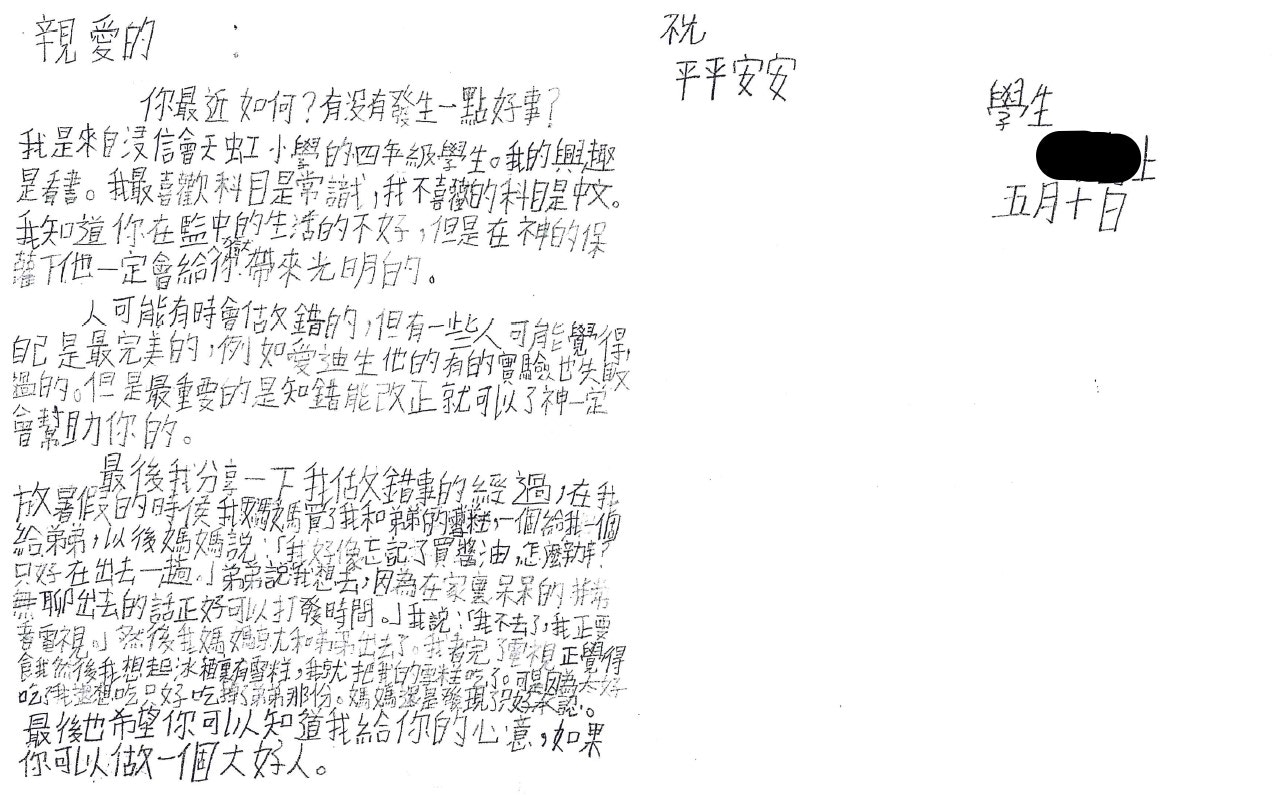 親愛的　　：
你最近如何？有沒有發生一點好事？
我是來自浸信會天虹小學的四年級學生。我的興趣
是看書。我最喜歡科目是常識，我不喜歡的科目是中文。
我知道你在監獄中的生活的不好，但是在神的保
蔭下他一定會給你帶來光明的。
人可能有時會做錯的，但有一些人可能覺得，
自己是最完美的，例如愛迪生他的有的實驗也失敗
過的。但是最重要的是知錯能改正就可以了神一定
會幫助你的。
最後我分享一下我做錯事的經過，在我
放暑假的時侯我媽媽買了我和弟弟的雪糕，一個給我一個
給弟弟，以後媽媽說：「我好像忘記了買醬油，怎麼辦？
只好在出去一趟。」弟弟說我想去，因為在家裏呆呆的非常
無聊出去的話正好可以打發時間。」我說：「我不去了，我正要
看電視。」然後我媽媽就和弟弟出去了。我看完了電視正覺得
餓我然後我想起冰箱裏有雪糕，我就把我的雪糕吃了。可是因為太好
吃了我還想吃只好吃掉了弟弟那份。媽媽還是發現了只好承認。
最後也希望你可以知道我給你的心意，如果
你可以做一個大好人。
祝
平平安安
學生
上
五月十日